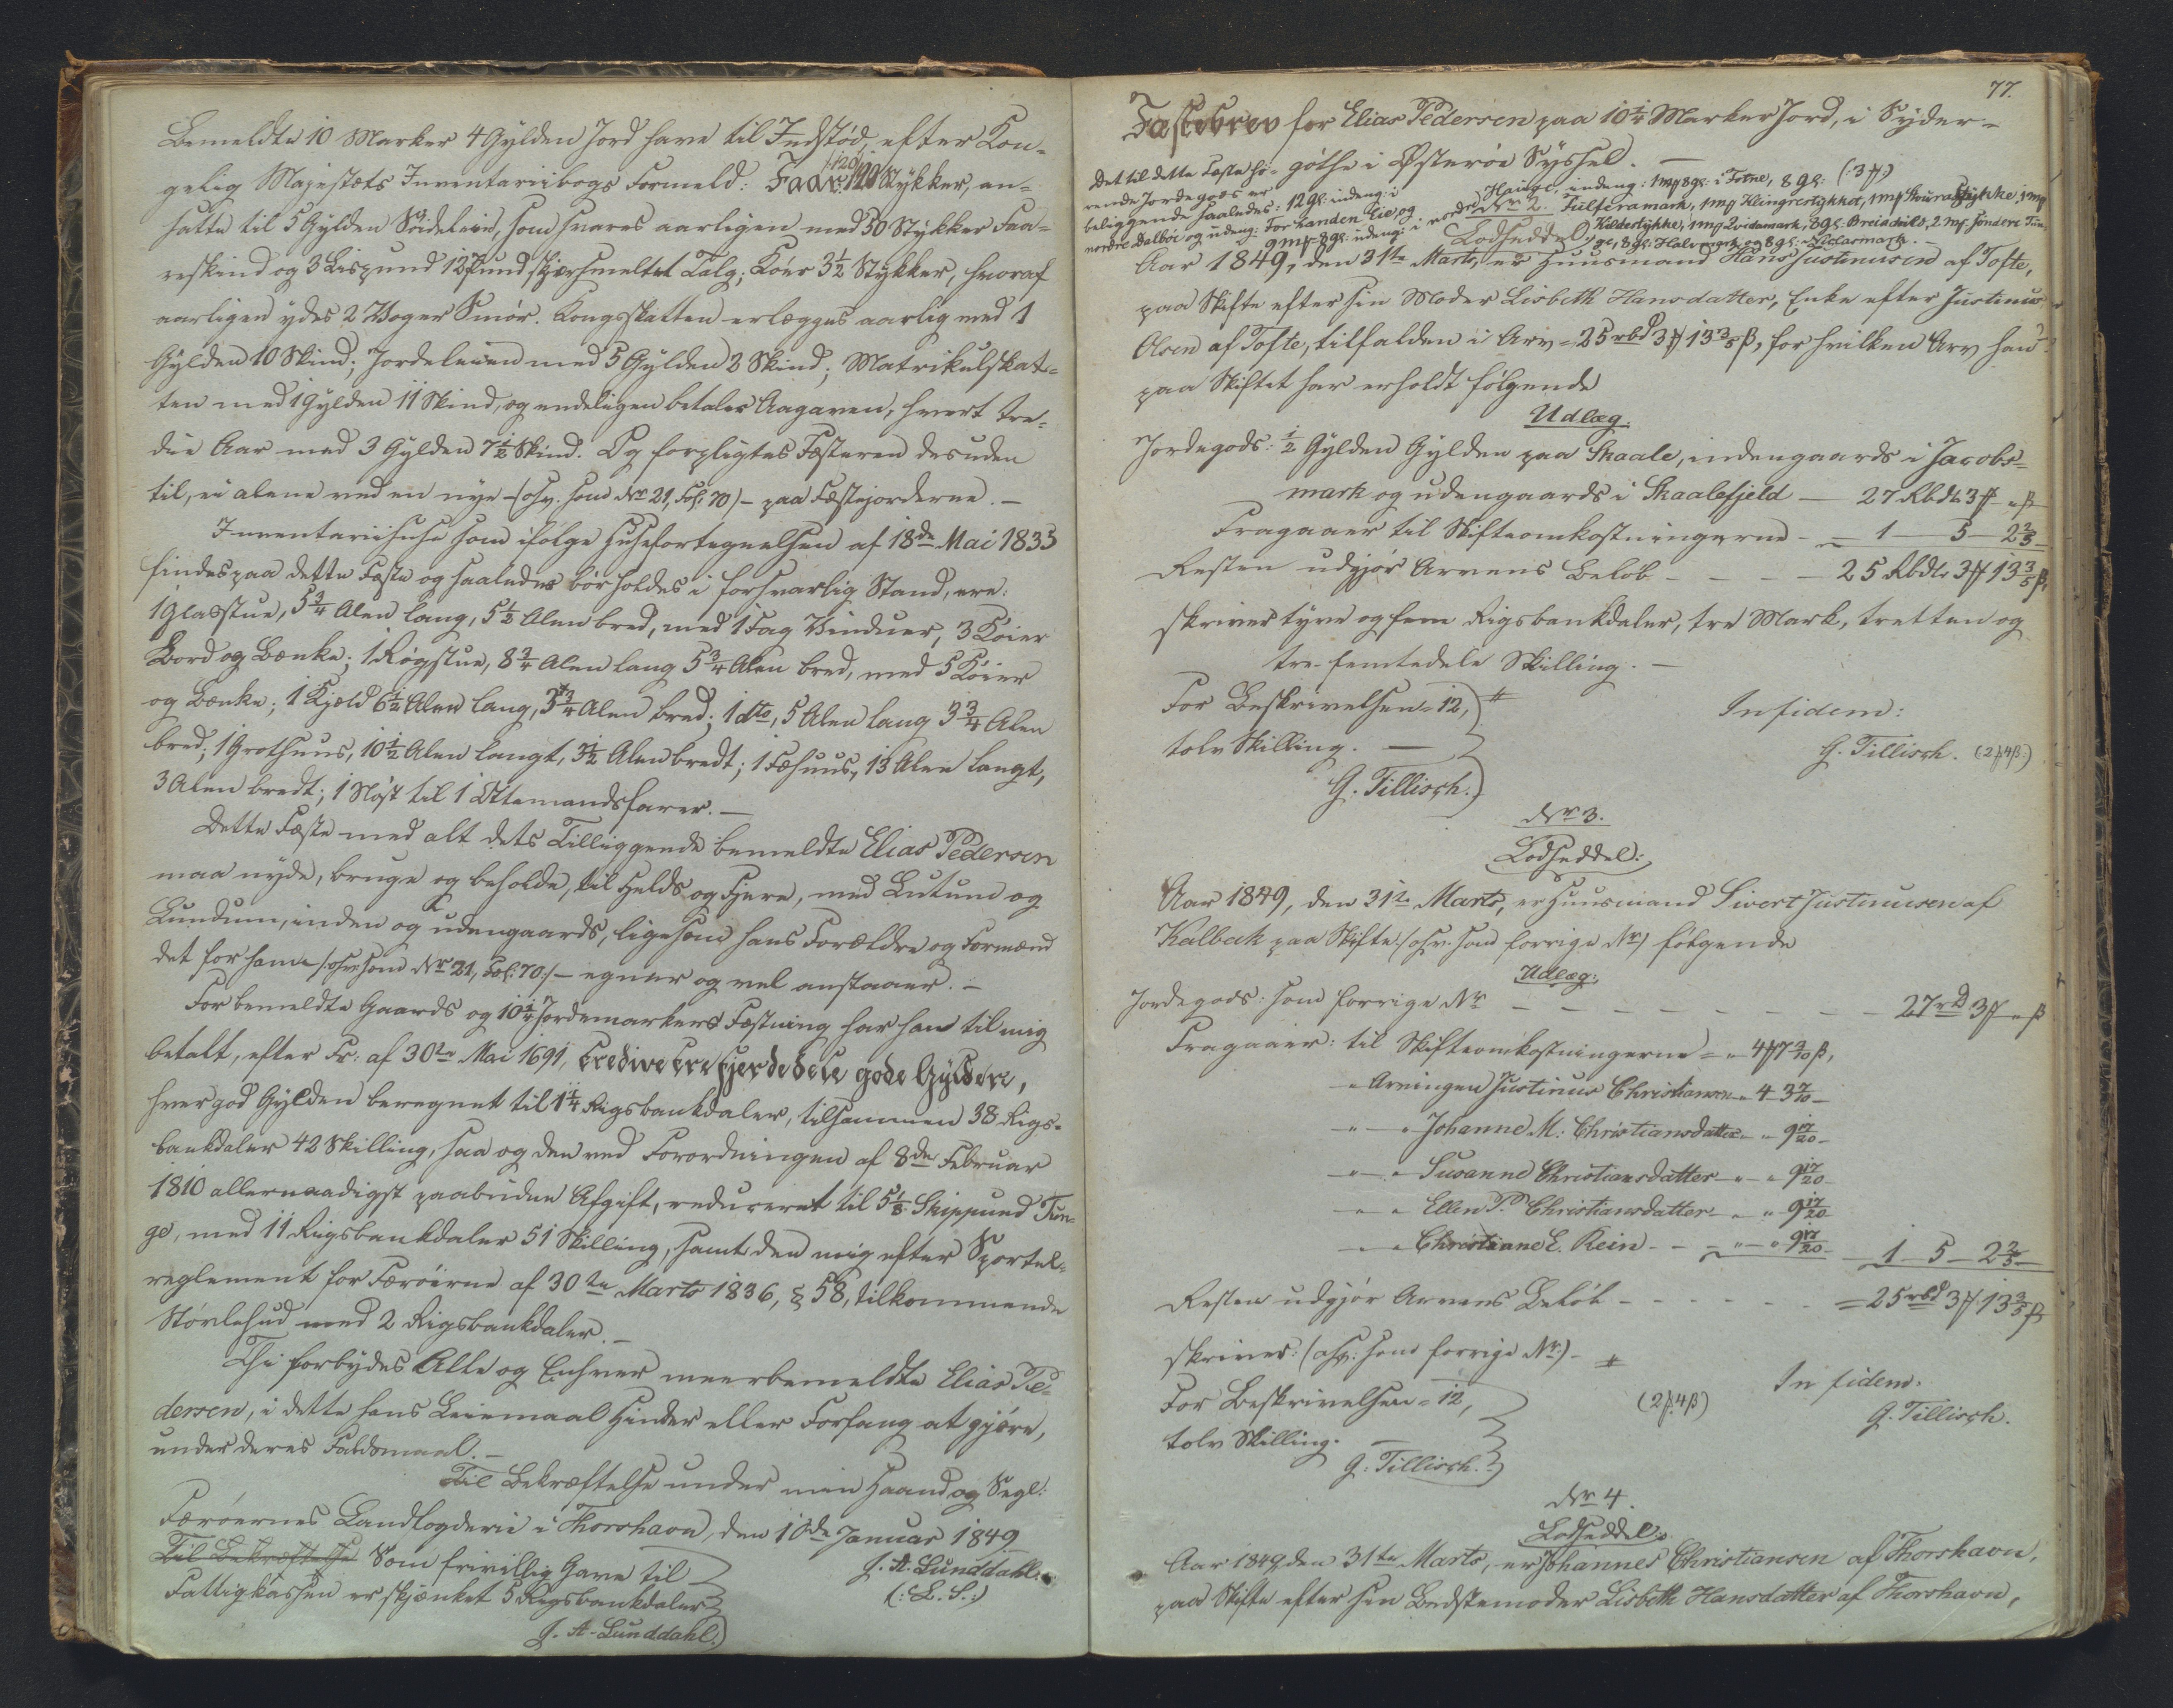 Bemeldte 10 Marker 4 Gylden Jord have til Indstød, efter Kon-
gelig Majestæts Inventariibogs Formeld: Faar 120 Stykker, an-
(120)
satte til 5 Gylden Søideleie, som svares aarligen med 50 Stykker Faa-
reskind og 3 Lispund 12 Pund skjærsmeltet Talg; Køer 3½ Stykker, hvoraf
aarligen ydes 2 Voger Smør. Kongsskatten erlægges aarlig med 1
Gylden 10 Skind; Jordeleien med 5 Gylden 2 Skind; Matrikulskat-
ten med 1 Gylden 11 Skind, og endeligen betales Aagaven, hvert tre-
die Aar med 3 Gylden 7½ Skind. Og forpligtes Fæsteren desuden
til, ei alene ved en nye -(osv. som No 21, Fol. 70)- paa Fæstejorderne. -
Inventariihuse som ifølge Husefortegnelsen af 18de Mai 1835
findes paa dette Fæste og saaledes bør holdes i forsvarlig Stand, ere:
1 Glasstue, 5¾ Alen lang, 5½ Alen bred, med 1 Fag Vinduer, 3 Køier
Bord og Bænke; 1 Røgstue, 8¾ Alen lang 5¾ Alen bred, med 5 Køier
og Bænke; 1 Kjæld 6½ Alen lang, 3¾ Alen bred; 1 dto, 5 Alen lang 3¾ Alen
bred; 1 Grothuus, 10½ Alen langt, 3½ Alen bredt; 1 Fæhuus, 13 Alen langt,
3 Alen bredt; 1 Nøst til 1 Ottemandsfarer. -
Dette Fæste med alt dets Tilliggende bemeldte Elias Pedersen
maa nyde, bruge og beholde, til Felds og Fjære, med Lutum og
Lundum, inden og udengaards, ligesom hans Forældre og Formænd
det før ham /: osv. som No 21, Fol. 70 :/ - egner og vel anstaaer. -
For bemeldte Gaards og 10¼ Jordemarkers Fæstning har han til mig
betalt, efter Fr: af 30te Mai 1691, tredive tre fjerdedele gode Gylden,
hver god Gylden beregnet til 1¼ Rigsbankdaler, tilsammen 38 Rigs-
bankdaler 42 Skilling, saa og den ved Forordningen af 8de Februar
1810 allernaadigst paabudne Afgift, reduceret til 5⅛ Skippund Tun-
ge, med 11 Rigsbankdaler 51 Skilling, samt den mig efter Sportel-
reglement for Færøerne af 30te Marts 1836, § 58, tilkommende
Støvlehud med 2 Rigsbankdaler. -
Thi forbydes Alle og Enhver meerbemeldte Elias Pe-
dersen, i dette hans Leiemaal Hinder eller Forfang at gjøre,
under deres Faldsmaal. -
Til Bekræftelse under min Haand og Segl:
Færøernes Landfogderie i Thorshavn, den 10de Januar 1849.
Til Bekræftelse Som frivillig Gave til
J. A. Lunddahl.
Fattigkassen er skjænket 5 Rigsbankdaler
(: L. S. :)
J. A. Lunddahl.
77.
Fæstebrev for Elias Pedersen paa 10¼ Marker Jord, i Syder-
gøthe i Østerøe Syssel. -
Det til dette Fæste hø-
rende Jordegods er
beliggende saaledes: 12 Gl: indeng: i
nordre Dalbøe og udeng: For handen Eie og
9 mk 8 gl: udeng: i nordre
Hauge, indeng: 1 mk 8 gl: i Tofne, 8 gl: (: 3 # :)
No 2. Fulferamark, 1 mk Klingrestykket, 1 mk Kouradstykke, 1 mk
Kildestykke, 1 mk Qvidamark, 8 gl: Breiadvild, 2 mk. søndere Tun-
Lodseddel,
ge, 8 gl: Halvmark og 8 gl: Lidarmark. -
Aar 1849, den 31te Marts, er Huusmand Hans Justinusen af Tofte,
paa Skifte efter sin Moder Lisbeth Hansdatter, Enke efter Justinus
Olsen af Tofte, tilfalden i Arv = 25 rbd 3 # 13⅗ ß, for hvilken Arv han
paa Skiftet har erholdt følgende
Udlæg:
Jordegods: ½ Gylden Gylden paa Skaale, indengaards i Jacobs-
mark og udengaards i Skaalefjeld - 27 Rbdlr 3 # „ ß
Fragaaer til Skifteomkostningerne - 1 - 5 - 2⅖
Resten udgjør Arvens Beløb - - - - 25 Rbdlr 3 # 13⅗ ß,
skriver tyve og fem Rigsbankdaler, tre Mark, tretten og
tre femtedele Skilling. -
For Beskrivelsen = 12,
tolv Skilling. -
G. Tillisch.
In fidem:
G. Tillisch. (2 # 4 ß)
No 3.
Lodseddel:
Aar 1849, den 31te Marts, er Huusmand Sivert Justinusen af
Kalbak paa Skifte (osv. som forrige No) følgende
Udlæg:
Jordegods: som forrige No - - - - - - - - 27 rd 3 # „ ß
Fragaaer: til Skifteomkostningerne = „ 4 # 7 3/10 ß,
„ Arvingen Justinus Christiansen „ 4 3 7/10 -
„ - „ Johanne M: Christiansdatter - „ 9 17/20 -
„ - „ Susanne Christiansdatter - „ - „ 9 17/20 -
„ - „ Ellen P. Christiansdatter - „ - „ 9 17/20
„ - „ Christianne E. Rein - - „ - „ 9 17/20 - 1 - 5 - 2⅖
Resten udgjør Arvens Beløb - - - - - = 25 rbd 3 # 13⅗ ß
skriver: (osv: som forrige No) -
For Beskrivelsen = 12,
tolv Skilling. -
G. Tillisch.
(2 # 4 ß)
In fidem.
G. Tillisch.
No 4.
Lodseddel:
Aar 1849, den 31te Marts, er Johannes Christiansen af Thorshavn,
paa Skifte efter sin Bedstemoder Lisbeth Hansdatter af Thorshavn,